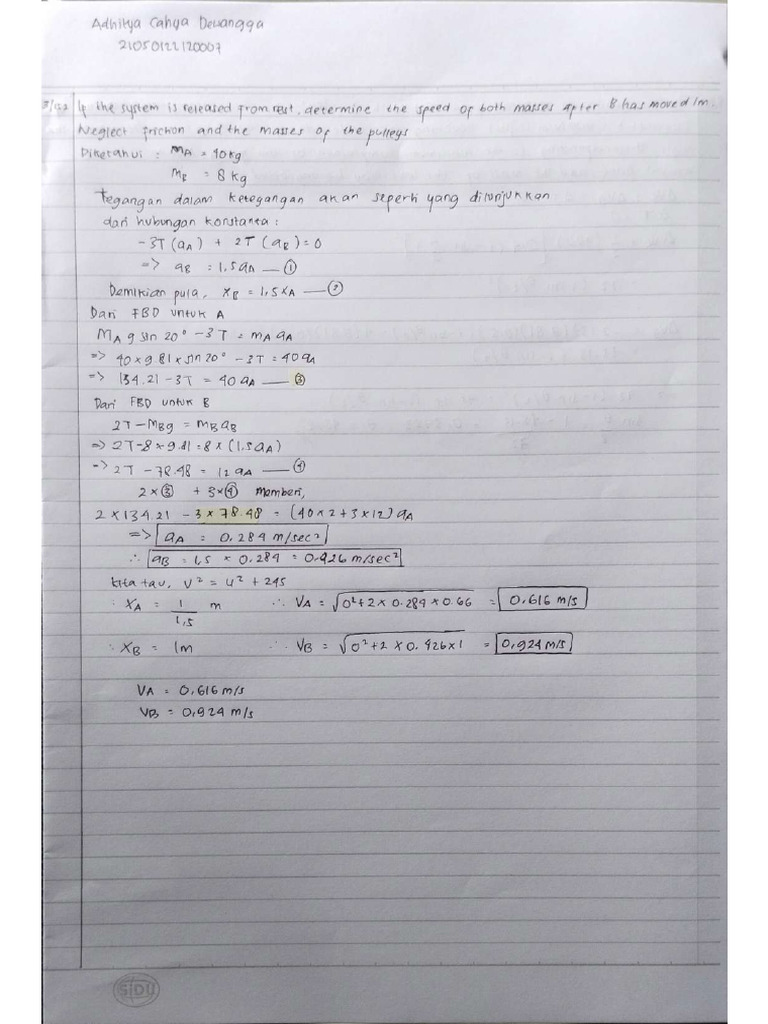 Adhitya Cahya Dewangga
21050122120007
If the system is released from rest, determine the speed of both masses after B has moved 1m.
Neglect friction and the masses of the pulleys
Diketahui : mA = 40 kg
mB = 8 kg
Tegangan dalam ketegangan akan seperti yang ditunjukkan
dari hubungan konstanta :
-3T (aA) + 2T (aB) = 0
=> aB = 1,5 aA — ①
Demikian pula, xB = 1,5 xA — ②
Dari FBD untuk A
MA g sin 20° - 3T = mA aA
=> 40 × 9.81 × sin 20° - 3T = 40 aA
=> 134.21 - 3T = 40 aA — ③
Dari FBD untuk B
2T - MBg = mB aB
=> 2T - 8 × 9.81 = 8 × (1,5 aA)
=> 2T - 78.48 = 12 aA — ④
2 × ③ + 3 × ④ memberi,
2 × 134.21 - 3 × 78.48 = (40 × 2 + 3 × 12) aA
=> aA = 0.284 m/sec²
∴ aB = 1,5 × 0.284 = 0.426 m/sec²
kita tau, v² = u² + 2as
∴ xA = 1/1,5 m ∴ VA = √0² + 2 × 0.284 × 0.66 = 0,616 m/s
∴ xB = 1m ∴ VB = √0² + 2 × 0.426 × 1 = 0,924 m/s
VA = 0,616 m/s
VB = 0,924 m/s
SIDU